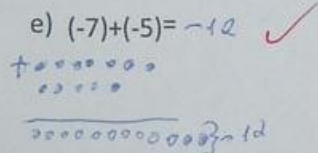 e) (-7)+(-5)= -12
+
-12